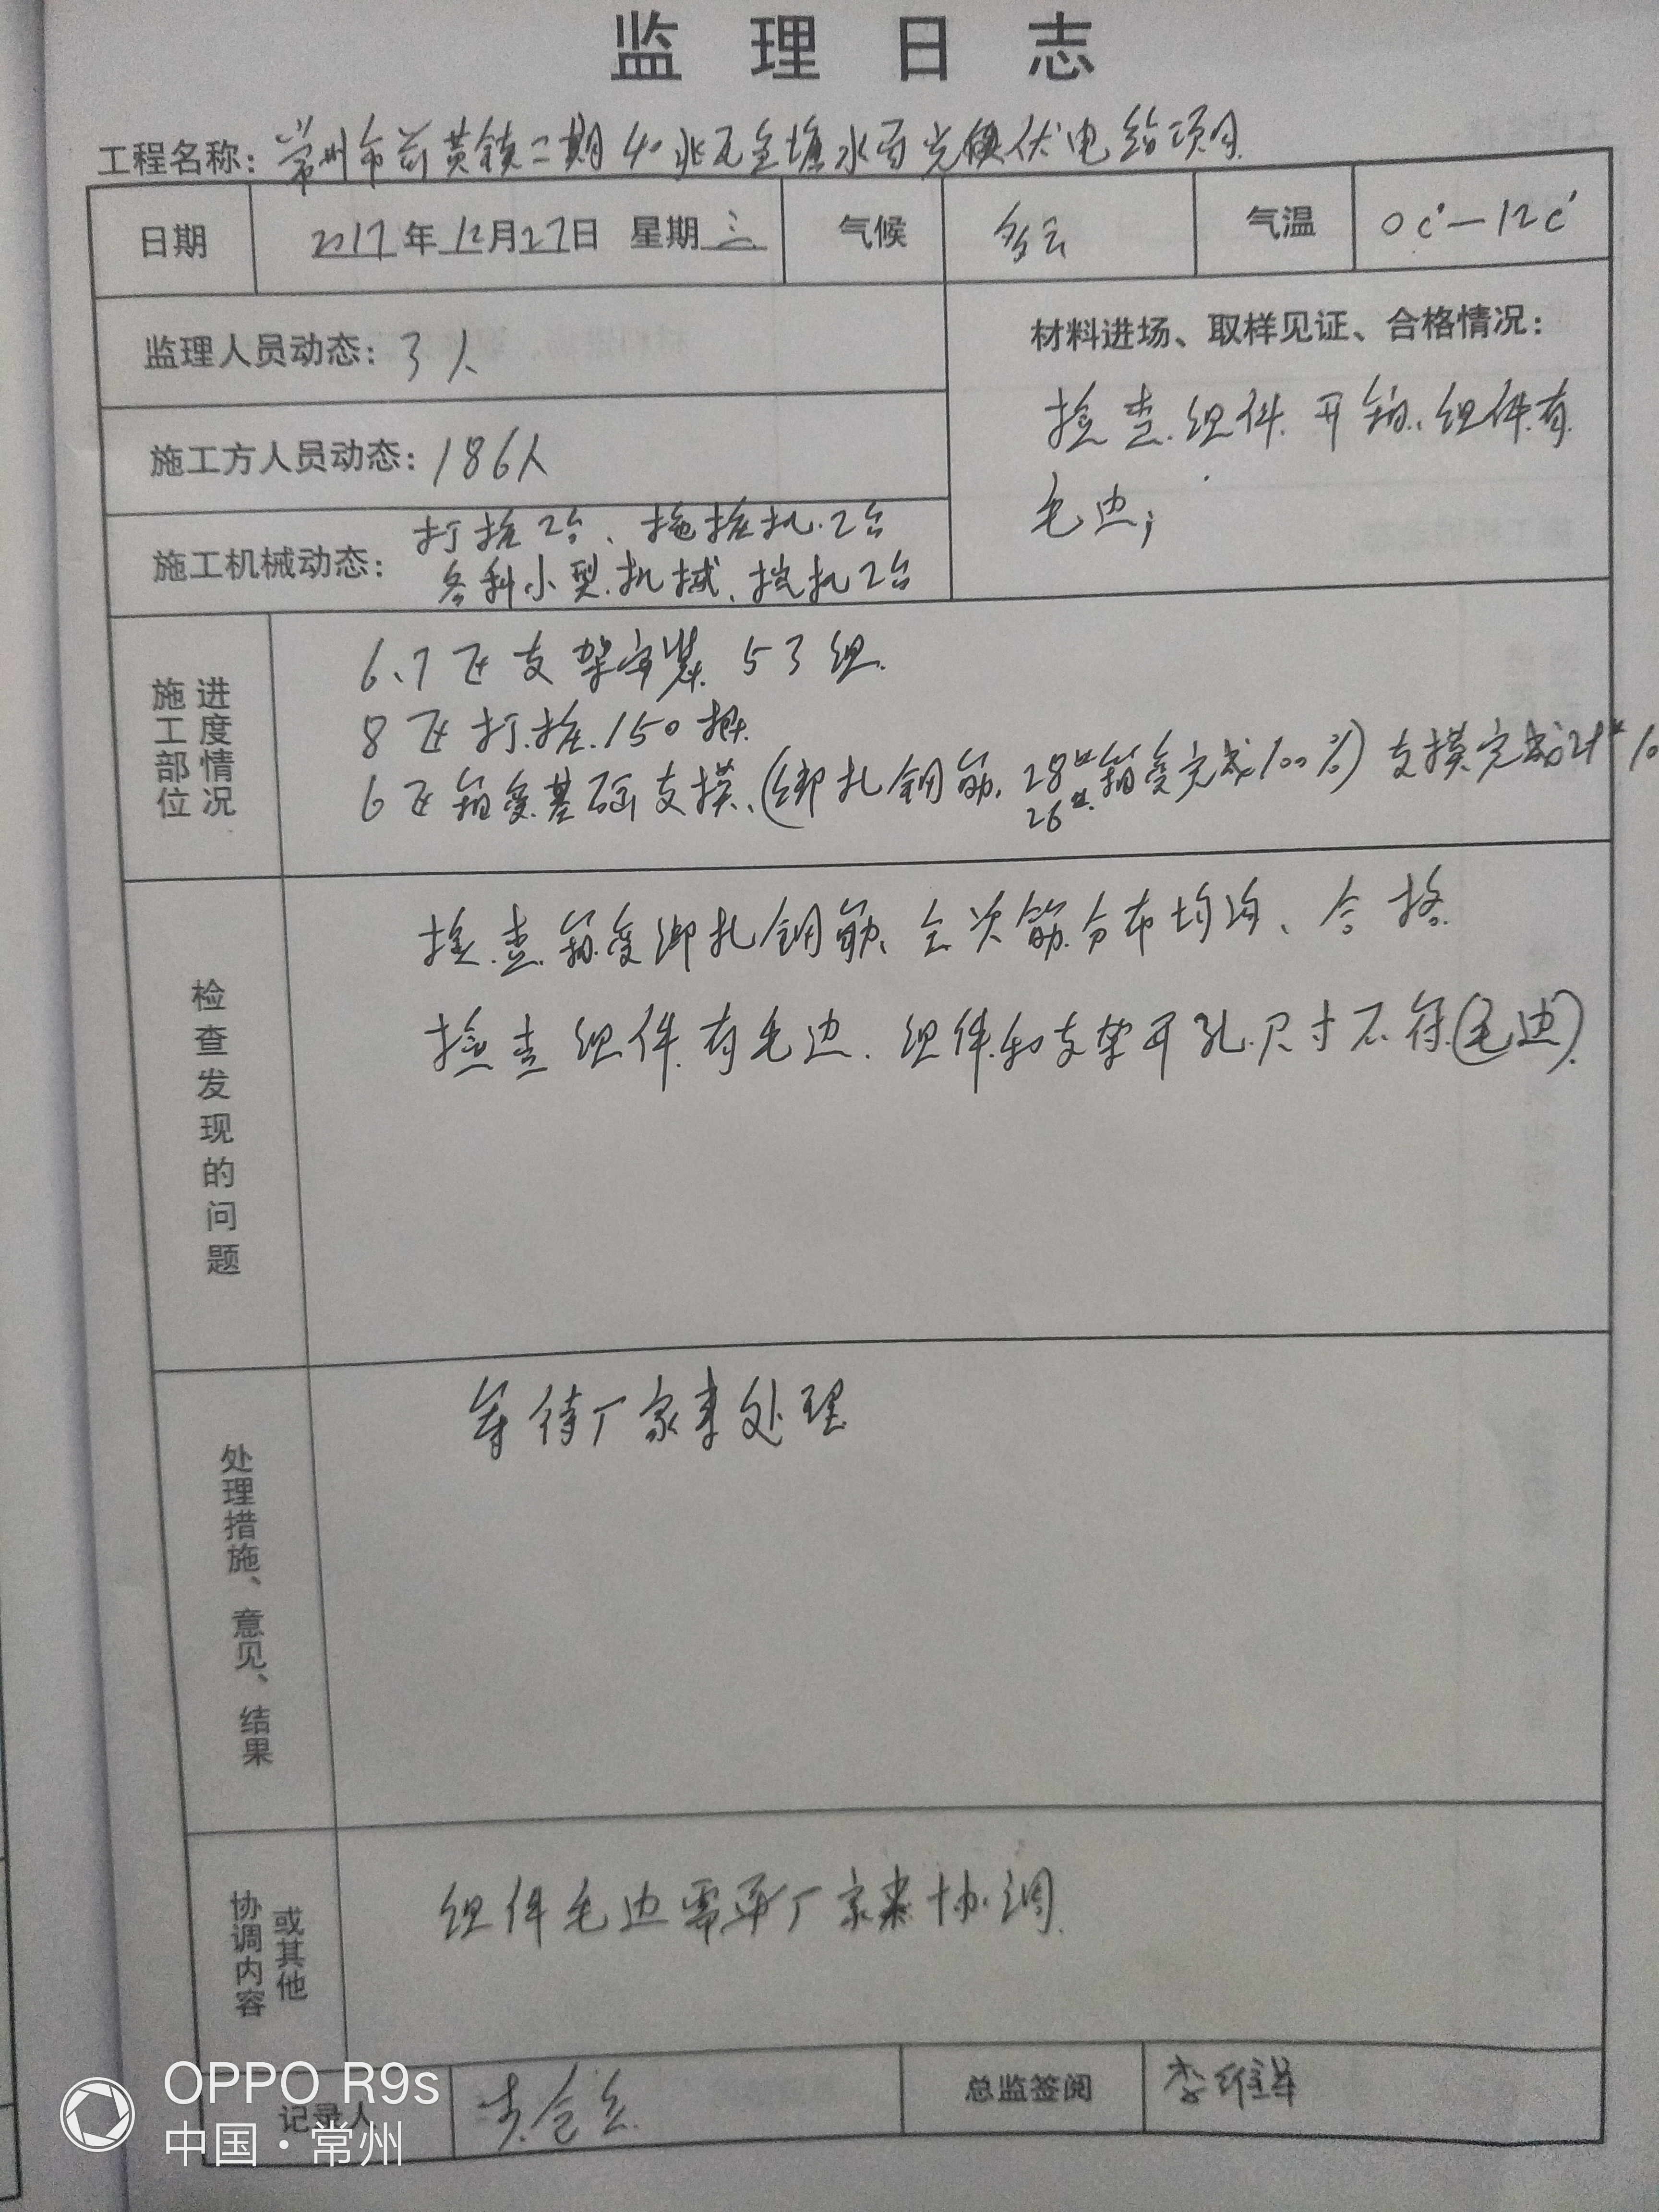 监理日志
工程名称：常州市前黄镇二期40兆瓦鱼塘水面光伏电站项目
日期 2017年12月27日 星期三 气候 多云 气温 0c°—12c°
监理人员动态：3人
材料进场、取样见证、合格情况：
检查组件开箱、组件有
毛边；
施工方人员动态：186人
施工机械动态：打桩2台、拖桩机2台
各种小型机械、挖机2台
施工部位进度情况
6、7区支架安装53组
8区打桩150根
6区箱变基础支模、(绑扎钢筋、28#箱变完成100%)支模完成
26#
检查发现的问题
检查箱变绑扎钢筋、主次筋分布均匀、合格
检查组件有毛边、组件和支架开孔尺寸不符(毛边)
处理措施、意见、结果
等待厂家来处理
协调内容或其他
组件毛边需要厂家来协调
记录人 总监签阅 李维祥
OPPO R9s
中国·常州